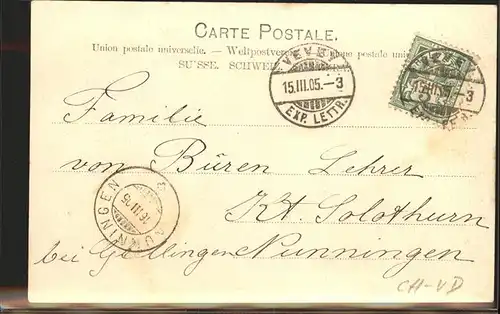 CARTE POSTALE.
Union postale universelle. — Weltpostverein. — Unione postale univ
SUISSE. SCHWEIZ.
VEVEY
15.III.05.–3
EXP. LETTR.
VEVEY
15.III.05.–3
EXP. LETTR.
Familie
von Büren Lehrer
Kt. Solothurn
bei Nunningen
NUNNINGEN
16.III.05
CH-VD